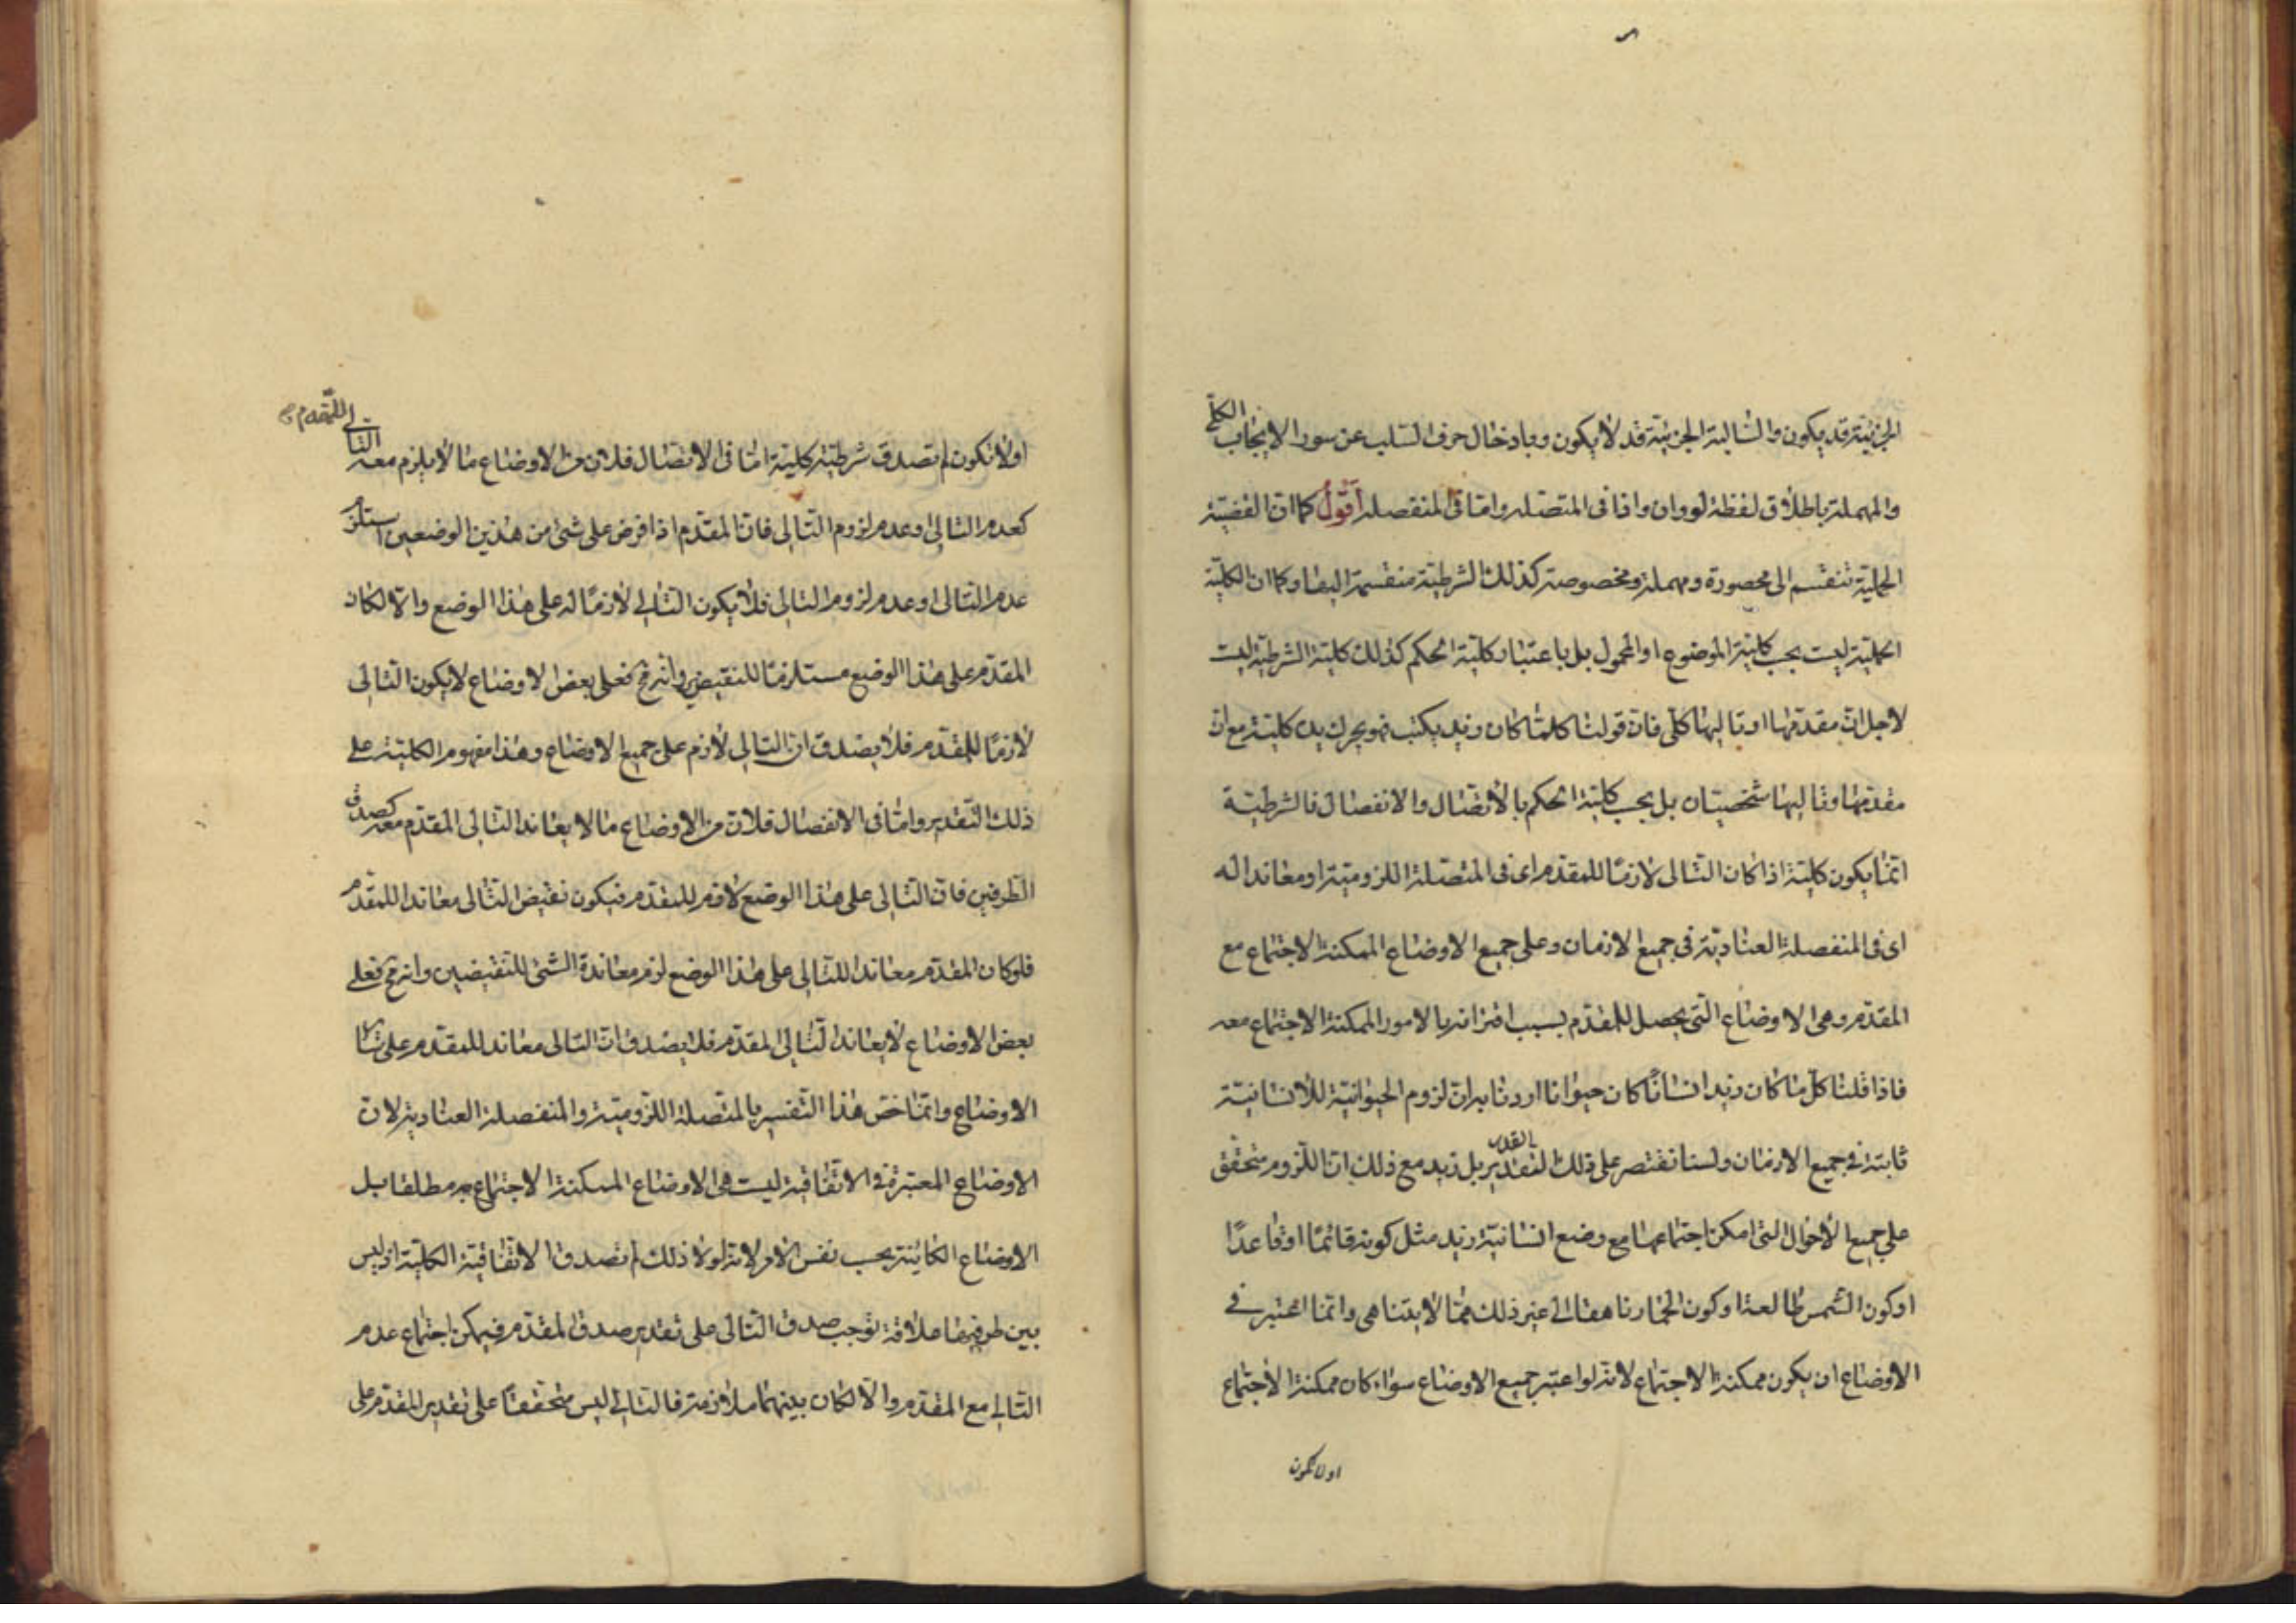 الجزئية قد يكون والسالبة الجزئية قد لا يكون وبادخال حرف السلب عن سور الايجاب الكلى
والمهملة باطلاق لفظة لو وان واذا فى المتصلة واما فى المنفصلة اقول كما ان القضية
الحملية تنقسم الى محصورة ومهملة ومخصوصة كذلك الشرطية منقسمة اليها وكما ان الكلية
الحملية ليست بحسب كلية الموضوع او المحمول بل باعتبار كلية الحكم كذلك كلية الشرطية ليست
لاجل ان مقدمها او تاليها كلى فان قولنا كلما كان زيد يكتب فهو يحرك يده كلية مع ان
مقدمها وتاليها شخصيتان بل بحسب كلية الحكم بالاتصال والانفصال فالشرطية
انما يكون كلية اذا كان التالى لازما للمقدم اى فى المتصلة اللزومية او معاندا له
اى فى المنفصلة العنادية فى جميع الازمان وعلى جميع الاوضاع الممكنة الاجتماع مع
المقدم وهى الاوضاع التى يحصل للمقدم بسبب اقترانه بالامور الممكنة الاجتماع معه
فاذا قلنا كل ما كان زيد انسانا كان حيوانا اردنا به ان لزوم الحيوانية للانسانية
ثابتة فى جميع الازمان ولسنا نقتصر على ذلك القدر بل نريد مع ذلك ان اللزوم متحقق
على جميع الاحوال التى امكن اجتماعها مع وضع انسانية زيد مثل كونه قائما او قاعدا
او كون الشمس طالعة او كون الحمار ناهقا الى غير ذلك مما لا يتناهى وانما اعتبر فى
الاوضاع ان يكون ممكنة الاجتماع لانه لو اعتبر جميع الاوضاع سواء كان ممكنة الاجتماع
او لا تكون
او لا تكون لم تصدق شرطية كلية اما فى الاتصال فلان من الاوضاع ما لا يلزم معه التالى للمقدم
كعدم التالى او عدم لزوم التالى فان المقدم اذا فرض على شئ من هذين الوضعين استلزم
عدم التالى او عدم لزوم التالى فلا يكون التالى لازما له على هذا الوضع والا لكان
المقدم على هذا الوضع مستلزما للنقيضين وانه مح فعلى بعض الاوضاع لا يكون التالى
لازما للمقدم فلا يصدق ان التالى لازم على جميع الاوضاع وهذا مفهوم الكلية على
ذلك التقدير واما فى الانفصال فلان من الاوضاع ما لا يعاند التالى المقدم معه كصدق
الطرفين فان التالى على هذا الوضع لازم للمقدم فيكون نقيض التالى معاندا للمقدم
فلو كان المقدم معاندا للتالى على هذا الوضع لزم معاندة الشئ للنقيضين وانه مح فعلى
بعض الاوضاع لا يعاند التالى المقدم فلا يصدق ان التالى معاند للمقدم على سائر
الاوضاع وانما خص هذا التفسير بالمتصلة اللزومية والمنفصلة العنادية لان
الاوضاع المعتبرة فى الاتفاقية ليست هى الاوضاع الممكنة الاجتماع مطلقا بل
الاوضاع الكاينة بحسب نفس الامر لانه لولا ذلك لم تصدق الاتفاقية الكلية اذ ليس
بين طرفيها علاقة توجب صدق التالى على تقدير صدق المقدم فيمكن اجتماع عدم
التالى مع المقدم والا لكان بينهما ملازمة فالتالى ليس متحققا على تقدير المقدم على